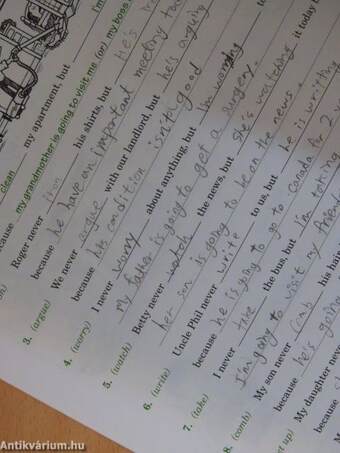 clean
my apartment, but
I'm
because my grandmother is going to visit me (or) my boss
Roger never iron his shirts, but he's
because he have an important meeting
3. (argue) We never argue with our landlord, but he's arguing
because his condition isn't good
4. (worry) I never worry about anything, but I'm worrying
My father is going to get a surgery.
5. (watch) Betty never watch the news, but she's watching it today
her son is going to be on the news.
6. (write) Uncle Phil never write to us, but he is writing
because he is going to go to Canada for 2
7. (take) I never take the bus, but I'm taking
I'm going to visit my friend
8. (comb) My son never comb his hair
because he's going
My daughter never
because
Antikvarium.hu